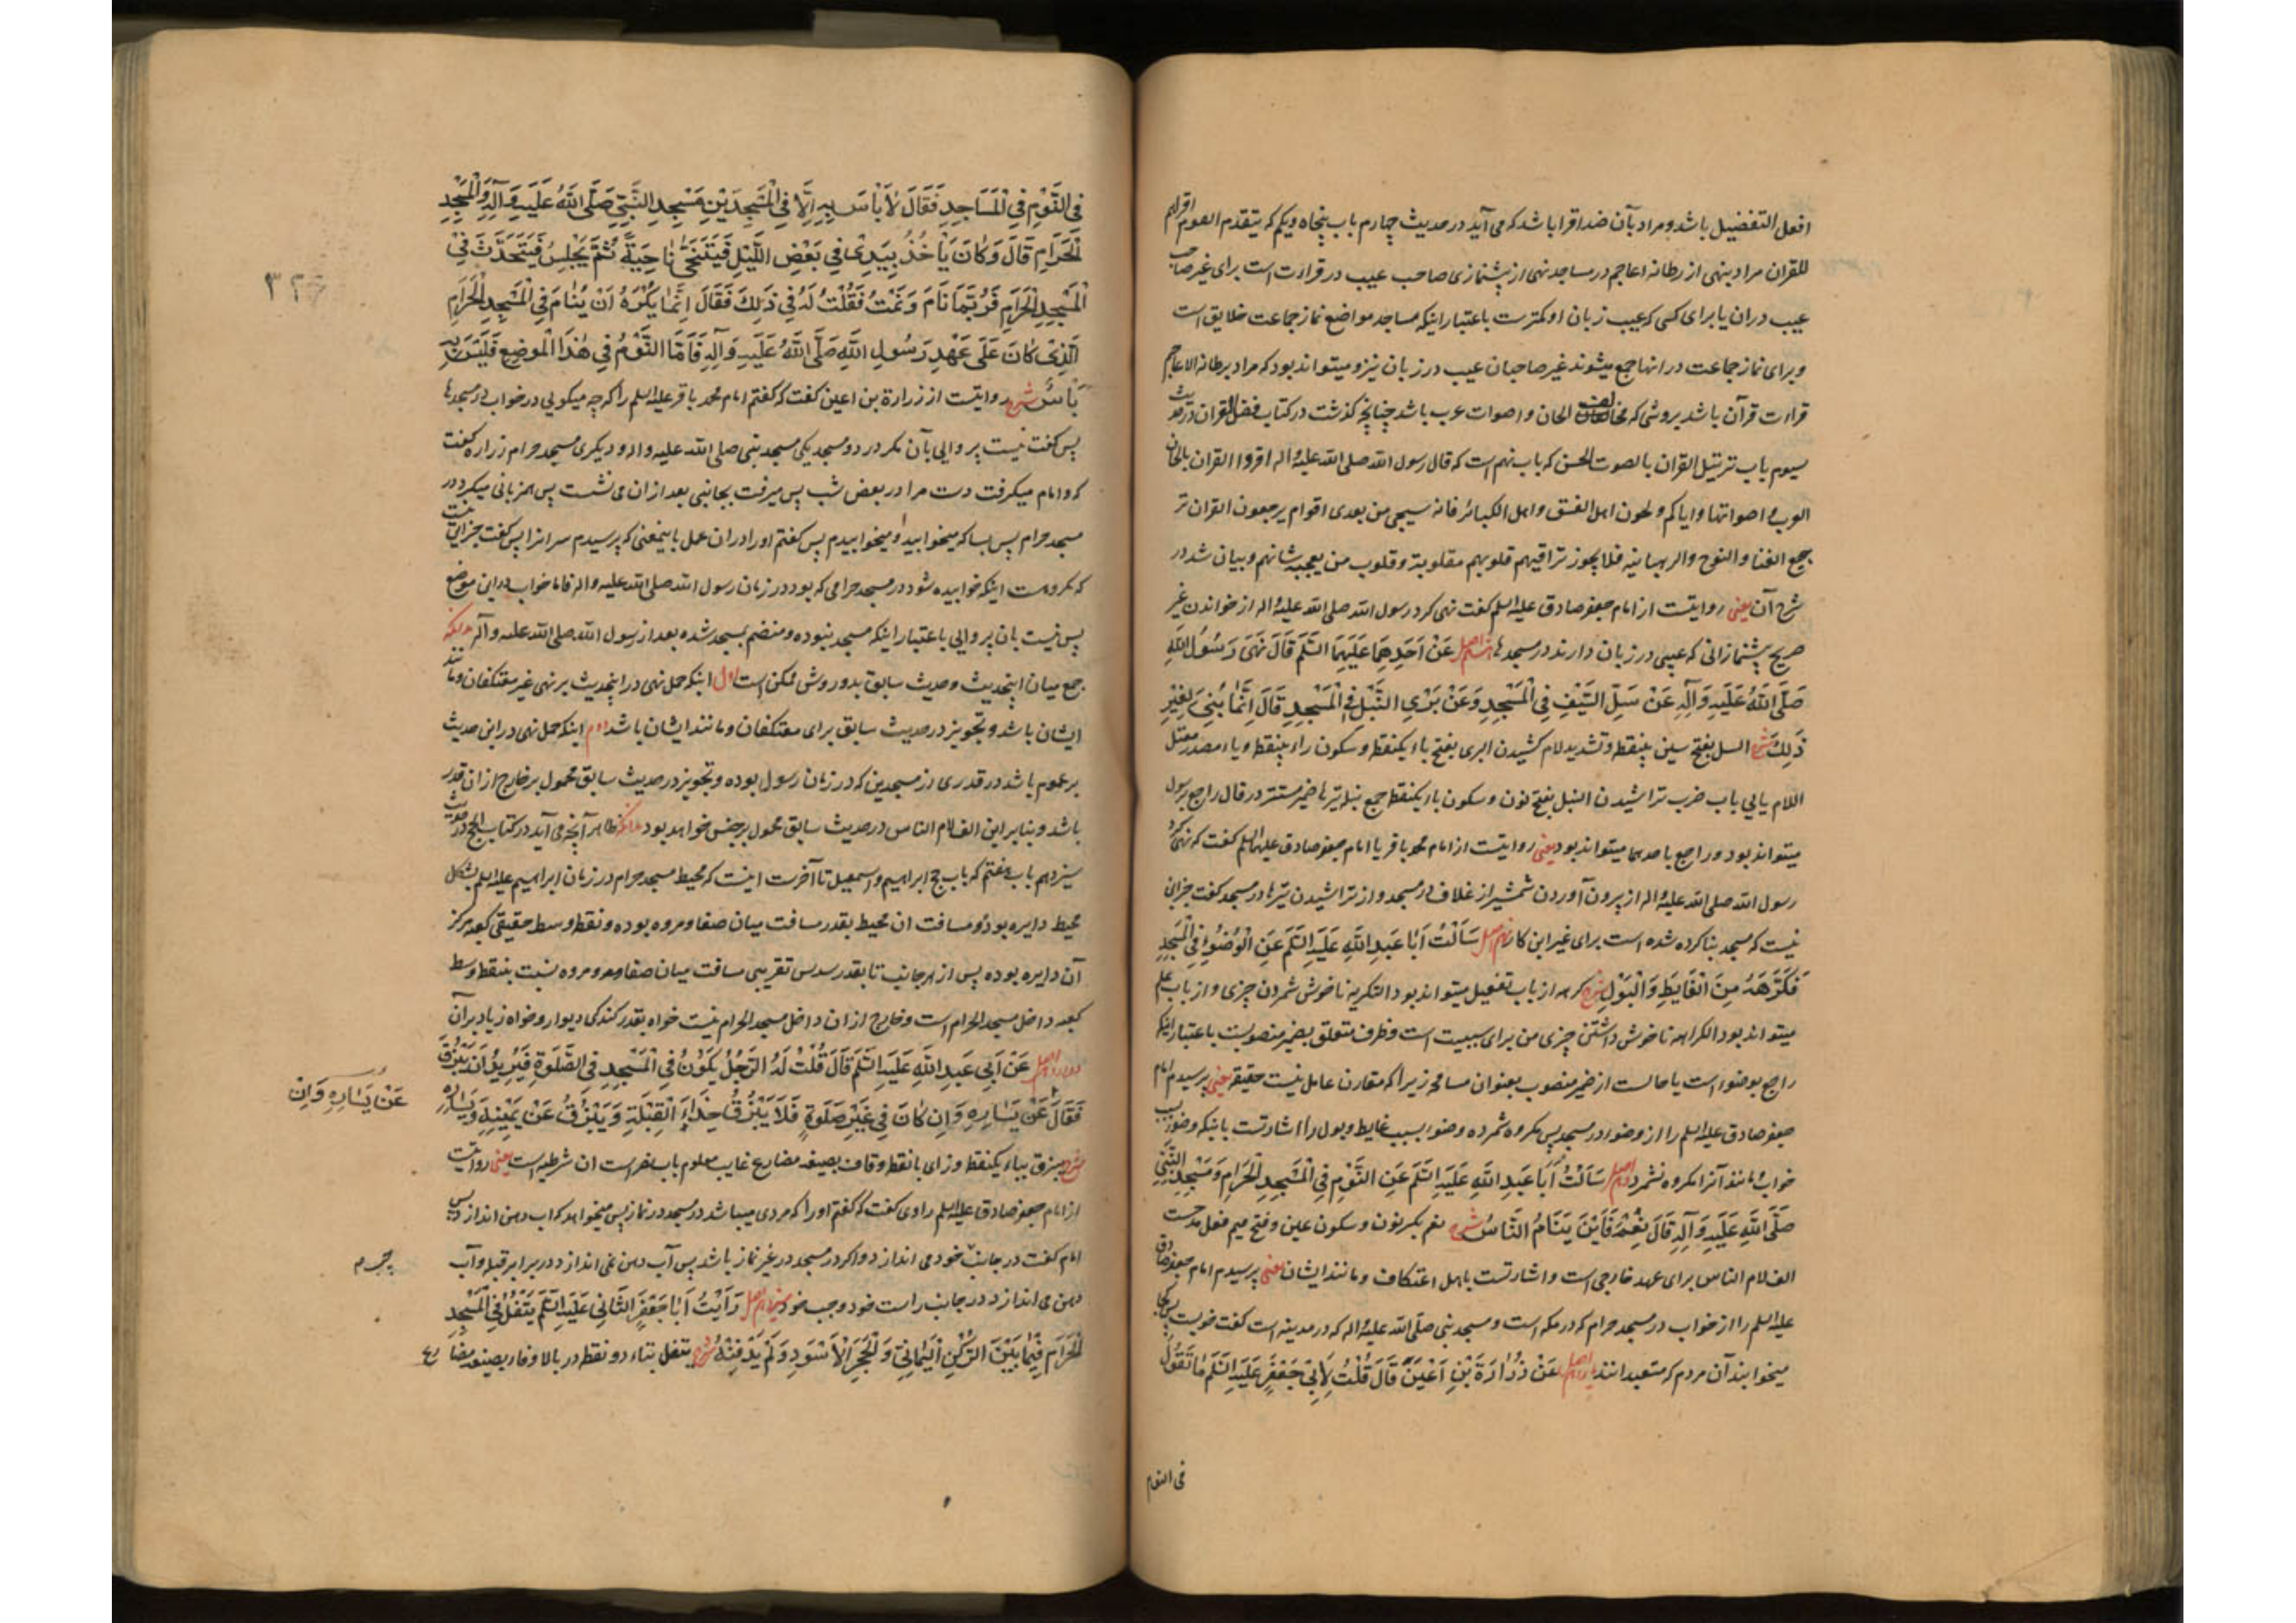 افعل التفضیل باشد و مراد بآن ضد اقرا باشد که می آید در حدیث چهارم باب پنجاه و یکم که یتقدم القوم اقراهم
للقران مراد بنهی از رطانه اعاجم در مساجد نهی از پشنمازی صاحب عیب در قراءت است برای غیر صاحب
عیب در ان یا برای کسی که عیب زبان او کمترست باعتبار اینکه مساجد مواضع نماز جماعت خلایق است
و برای نماز جماعت در انها جمع میشوند غیر صاحبان عیب در زبان نیز و میتواند بود که مراد برطانة الاعاجم
قراءت قرآن باشد بروشی که مخالف الحان و اصوات عرب باشد چنانچه گذشت در کتاب فضل القران در حدیث
سیوم باب ترتیل القران بالصوت الحسن که باب نهم است که قال رسول الله صلی الله علیه و اله اقروا القران بالحان
العرب و اصواتها و ایاکم و لحون اهل الفسق و اهل الکبائر فانه سیجی من بعدی اقوام یرجعون القران تر
جیع الغنا و النوح و الرهبانیه فلا یجوز تراقیهم قلوبهم مقلوبة و قلوب من یعجبه شانهم و بیان شد در
شرح آن یعنی روایتست از امام جعفر صادق علیه السلم گفت نهی کرد رسول الله صلی الله علیه و اله از خواندن غیر
صریح پشنمازانی که عیبی در زبان دارند در مسجد ها اصل عَنْ اَحَدِهِمَا عَلَیْهِمَا السَّلَم قَالَ نَهَی رَسُولُ اللّٰهِ
صَلَّی اللّٰهُ عَلَیْهِ وَآلِهِ عَنْ سَلِّ السَّیْفِ فِی الْمَسْجِدِ وَعَنْ بَرْیِ النَّبْلِ فِی الْمَسْجِدِ قَالَ اِنَّمَا بُنِیَ لِغَیْرِ
ذٰلِکَ شرح السل بفتح سین بینقطه و تشدید لام کشیدن البری بفتح باء یکنقطه و سکون راء بینقطه و یاء مصدر معتل
اللام یایی باب ضرب تراشیدن النبل بفتح نون و سکون باء یکنقطه جمع نبل تیرها ضمیر مستتر در قال راجع برسول
میتواند بود و راجع باحدهما میتواند بود یعنی روایتست از امام محمد باقر یا امام جعفر صادق علیهما السلم گفت که نهی کرد
رسول الله صلی الله علیه و اله از برون آوردن شمشیر از غلاف در مسجد و از تراشیدن تیرها در مسجد گفت جز این
نیست که مسجد بنا کرده شده است برای غیر این کار نهم اصل سَاَلْتُ اَبَا عَبْدِ اللّٰهِ عَلَیْهِ السَّلَم عَنِ الْوُضُوءِ فِی الْمَسْجِدِ
فَکَرَّهَهُ مِنَ الْغَایِطِ وَالْبَوْلِ شرح کرهه از باب تفعیل میتواند بود التکریه ناخوش شمردن چیزی و از باب علم
میتواند بود الکراهه ناخوش داشتن چیزی من برای سببیت است و ظرف متعلق بضمیر منصوبست باعتبار اینکه
راجع بوضوء است یا حالست از ضمیر منصوب بعنوان مسامحه زیرا که مقارن عامل نیست حقیقة یعنی پرسیدم امام
جعفر صادق علیه السلم را از وضو در مسجد پس مکروه شمرده وضو بسبب غایط و بول را اشارتست باینکه وضو بسبب
خواب و مانند آنرا مکروه نشمرد دهم اصل سَاَلْتُ اَبَا عَبْدِ اللّٰهِ عَلَیْهِ السَّلَم عَنِ النَّوْمِ فِی الْمَسْجِدِ الْحَرَامِ وَمَسْجِدِ النَّبِیِّ
صَلَّی اللّٰهِ عَلَیْهِ وَآلِهِ قَالَ نِعْمَ فَاَیْنَ یَنَامُ النَّاسُ شرح نعم بکسر نون و سکون عین و فتح میم فعل مدحست
الف لام الناس برای عهد خارجی است و اشارتست باهل اعتکاف و مانند ایشان یعنی پرسیدم امام جعفر صادق
علیه السلم را از خواب در مسجد حرام که در مکه است و مسجد نبی صلی الله علیه و اله که در مدینه است گفت خوبست پس کجا
میخوابند آن مردم که متعبدانند یازدهم اصل عَنْ زُرَارَةَ بْنِ اَعْیَنَ قَالَ قُلْتُ لِاَبِی جَعْفَرٍ عَلَیْهِ السَّلَم مَا تَقُولُ
فی النوم
فِی النَّوْمِ فِی الْمَسَاجِدِ فَقَالَ لَا بَأْسَ بِهِ اِلَّا فِی الْمَسْجِدَیْنِ مَسْجِدِ النَّبِیِّ صَلَّی اللّٰهُ عَلَیْهِ وَآلِهِ وَالْمَسْجِدِ
الْحَرَامِ قَالَ وَکَانَ یَأْخُذُ بِیَدِی فِی بَعْضِ اللَّیْلِ فَیَتَنَحَّی نَاحِیَةً ثُمَّ یَجْلِسُ فَیَتَحَدَّثُ فِی
الْمَسْجِدِ الْحَرَامِ فَرُبَّمَا نَامَ وَنِمْتُ فَقُلْتُ لَهُ فِی ذٰلِکَ فَقَالَ اِنَّمَا یُکْرَهُ اَنْ یُنَامَ فِی الْمَسْجِدِ الْحَرَامِ
الَّذِی کَانَ عَلَی عَهْدِ رَسُولِ اللّٰهِ صَلَّی اللّٰهُ عَلَیْهِ وَآلِهِ فَاَمَّا النَّوْمُ فِی هٰذَا الْمَوْضِعِ فَلَیْسَ بِهِ
بَأْسٌ شرح روایتست از زرارة بن اعین گفت که گفتم امام محمد باقر علیه السلم را که چه میگویی در خواب در مسجدها
پس گفت نیست پروایی بآن مگر در دو مسجد یکی مسجد نبی صلی الله علیه و اله و دیگری مسجد حرام زراره گفت
که و امام میگرفت دست مرا در بعض شب پس میرفت بجانبی بعد از ان می نشست پس همزبانی میکرد در
مسجد حرام پس بسا که میخوابید و میخوابیدم پس گفتم او را در ان عمل باینمعنی که پرسیدم سر انرا پس گفت جز این نیست
که مکروهست اینکه خوابیده شود در مسجد حرامی که بود در زمان رسول الله صلی الله علیه و اله فاما خواب در این موضع
پس نیست بان پروایی باعتبار اینکه مسجد نبوده و منضم بمسجد شده بعد از رسول الله صلی الله علیه و آله بدانکه
جمع میان اینحدیث و حدیث سابق بدو روش ممکن است اول اینکه حمل نهی در اینحدیث بر نهی غیر معتکفان و مانند
ایشان باشد و تجویز در حدیث سابق برای معتکفان و مانند ایشان باشد دوم اینکه حمل نهی در این حدیث
بر عموم باشد در قدری از مسجدین که در زمان رسول بوده و تجویز در حدیث سابق محمول بر خارج از ان قدر
باشد و بنابر این الف لام الناس در حدیث سابق محمول بر جنس خواهد بود بدانکه ظاهر آنچه می آید در کتاب الحج در حدیث
سیزدهم باب هفتم که باب حج ابراهیم و اسمعیل تا آخرت اینست که محیط مسجد حرام در زمان ابراهیم علیه السلم بشکل
محیط دایره بوده و مسافت ان محیط بقدر مسافت میان صفا و مروه بوده و نقطه وسط حقیقی کعبه مرکز
آن دایره بوده پس از هر جانب تا بقدر سدس تقریبی مسافت میان صفا و مروه نسبت بنقطه وسط
کعبه داخل مسجد الحرام است و خارج از ان داخل مسجد الحرام نیست خواه بقدر کندگی دیوار و خواه زیاد بر آن
دوازدهم اصل عَنْ اَبِی عَبْدِ اللّٰهِ عَلَیْهِ السَّلَم قَالَ قُلْتُ لَهُ الرَّجُلُ یَکُونُ فِی الْمَسْجِدِ فِی الصَّلٰوةِ فَیُرِیدُ اَنْ یَبْزُقَ
فَقَالَ عَنْ یَسَارِهِ وَاِنْ کَانَ فِی غَیْرِ صَلٰوةٍ فَلَا یَبْزُقُ حِذَاءَ الْقِبْلَةِ وَیَبْزُقُ عَنْ یَمِینِهِ وَیَسَارِهِ
عَنْ یَسَارِهِ وَاِنْ
شرح یبزق بباء یکنقطه و زای بانقطه و قاف بصیغه مضارع غایب معلوم باب نصر است ان شرطیه است یعنی روایتست
از امام جعفر صادق علیه السلم راوی گفت که گفتم او را که مردی میباشد در مسجد در نماز پس میخواهد که اب دهن اندازد پس
امام گفت در جانب خود می اندازد و اگر در مسجد در غیر نماز باشد پس آب دهن نمی اندازد در برابر قبله و آب
چپ م
دهن می اندازد در جانب راست خود و چپ خود سیزدهم اصل رَاَیْتُ اَبَا جَعْفَرٍ الثَّانِی عَلَیْهِ السَّلَم یَتْفُلُ فِی الْمَسْجِدِ
الْحَرَامِ فِیمَا بَیْنَ الرُّکْنِ الْیَمَانِیِّ وَالْحَجَرِ الْاَسْوَدِ وَلَمْ یَدْفِنْهُ شرح یتفل بتاء دو نقطه در بالا و فاء بصیغه مضارع